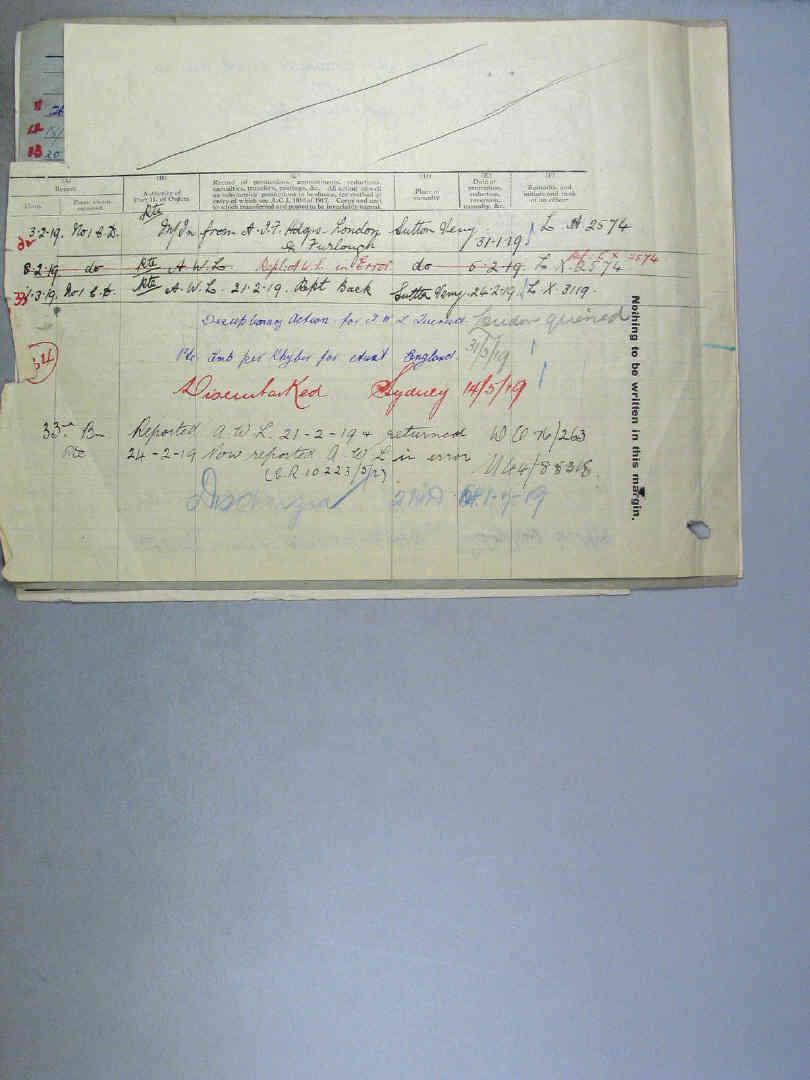 (A)
Report
(B)
Authority of Part II. of Orders
Record of promotions, appointments, reductions,
casualties, transfers, postings, &c. All acting as well
as substantive promotions to be shown, for method of
entry of which see A.C.I. 1816 of 1917. Corps and unit
to which transferred and posted to be invariably stated.
(D)
Place of casualty
(E)
Date of promotion, reduction, reversion, casualty, &c.
(F)
Remarks, and initials and rank of an officer
Date.
From whom received.
Pte
3-2-19. No 1 C.D. M/In from A.I.F. Hdqrs London Sutton Veny 31-1-19 L 2574
Ex Furlough
8-2-19 do Pte A.W.L. Rept. A.W.L. in Error do 5-2-19 L X 2574 2574
3-19. No 1 C.D. Pte A.W.L. 21-2-19. Rept Back Sutton Veny 24-2-19 L X 3119.
Action for A.W.L. London queried
31/3/19
Pte Emb per Khyber for Aust England
Disembarked Sydney 14/5/19
33rd Bn Reported A.W.L. 21-2-19 & returned W O 76/263
Pte 24-2-19 Now reported A.W.L in error
Discharged 2nd MD 1-7-19
Nothing to be written in this margin.